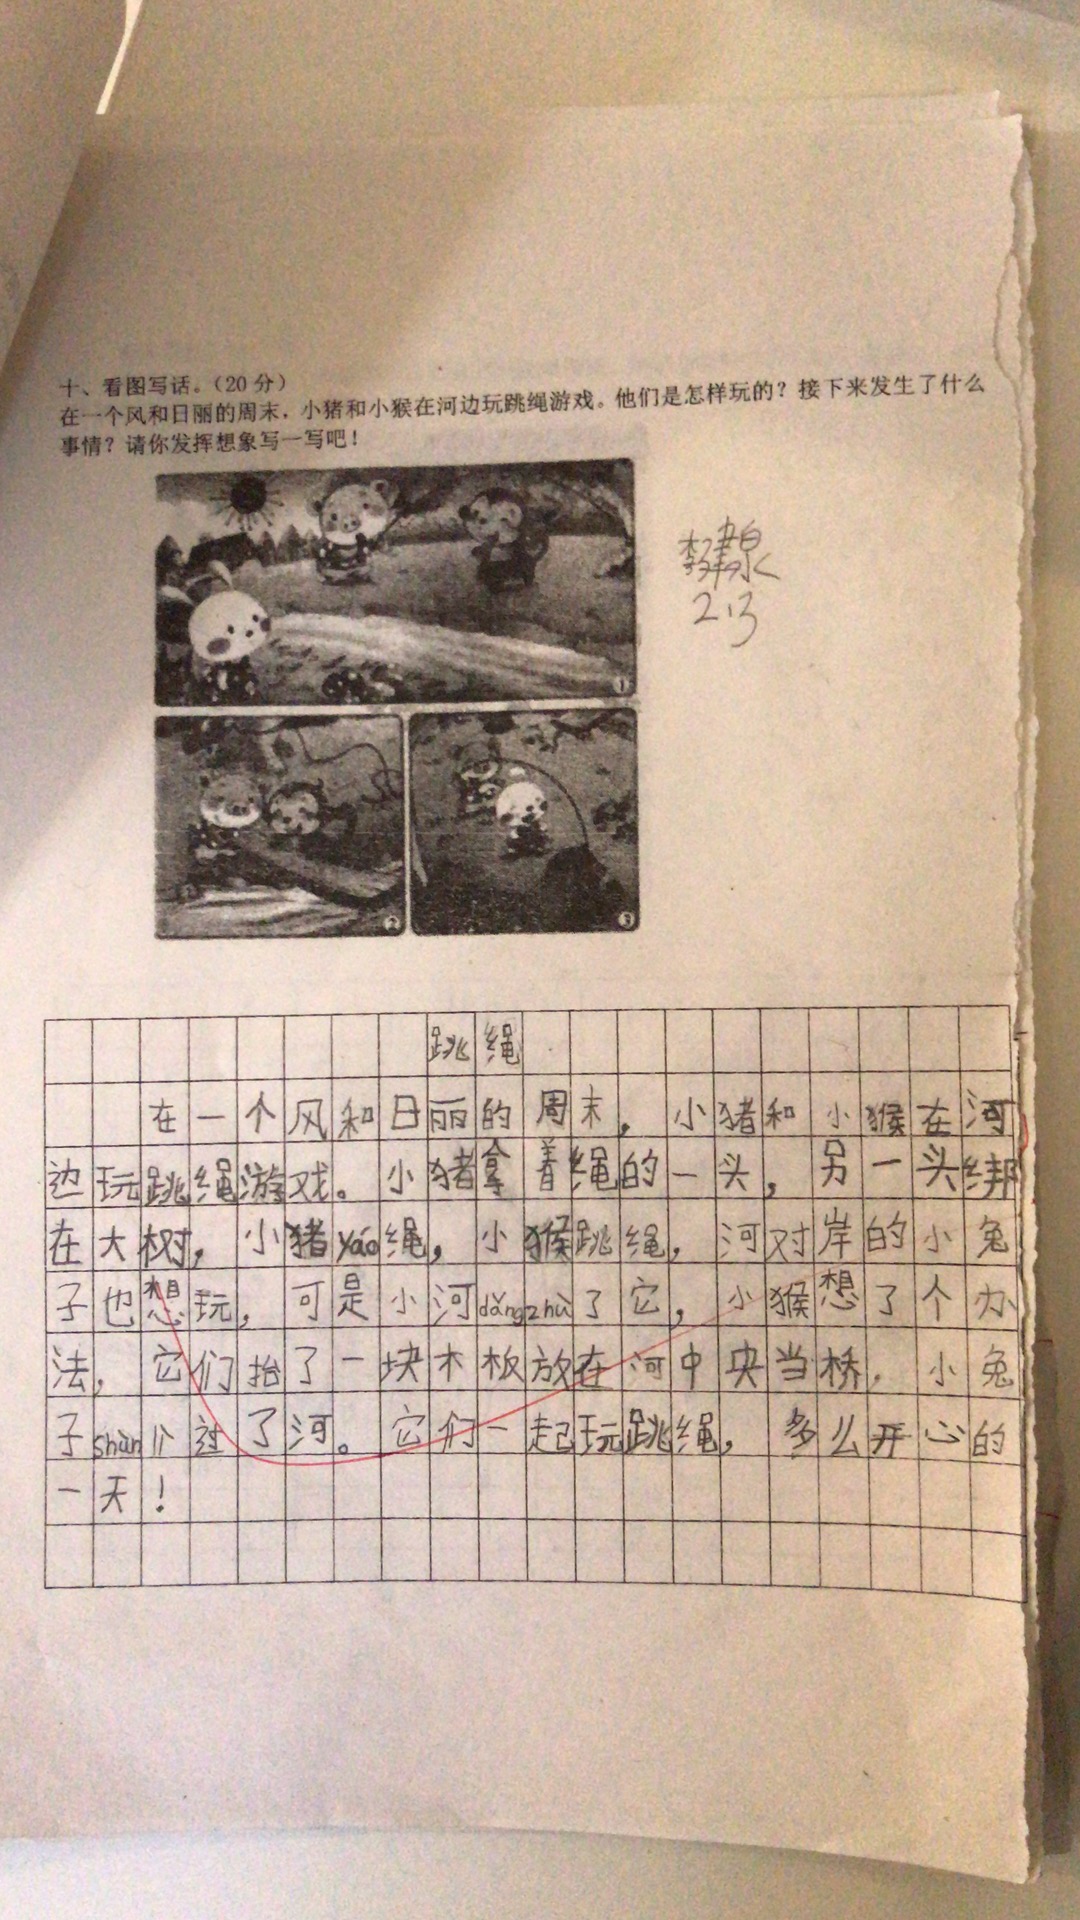 十、看图写话。（20分）
在一个风和日丽的周末，小猪和小猴在河边玩跳绳游戏。他们是怎样玩的？接下来发生了什么
事情？请你发挥想象写一写吧！
2.13
①
②
③
跳绳
在一个风和日丽的周末，小猪和小猴在河
边玩跳绳游戏。小猪拿着绳的一头，另一头绑
在大树，小猪yáo绳，小猴跳绳，河对岸的小兔
子也想玩，可是小河dǎngzhù了它，小猴想了个办
法，它们抬了一块木板放在河中央当桥，小兔
子shùn小过了河。它们一起玩跳绳，多么开心的
一天！